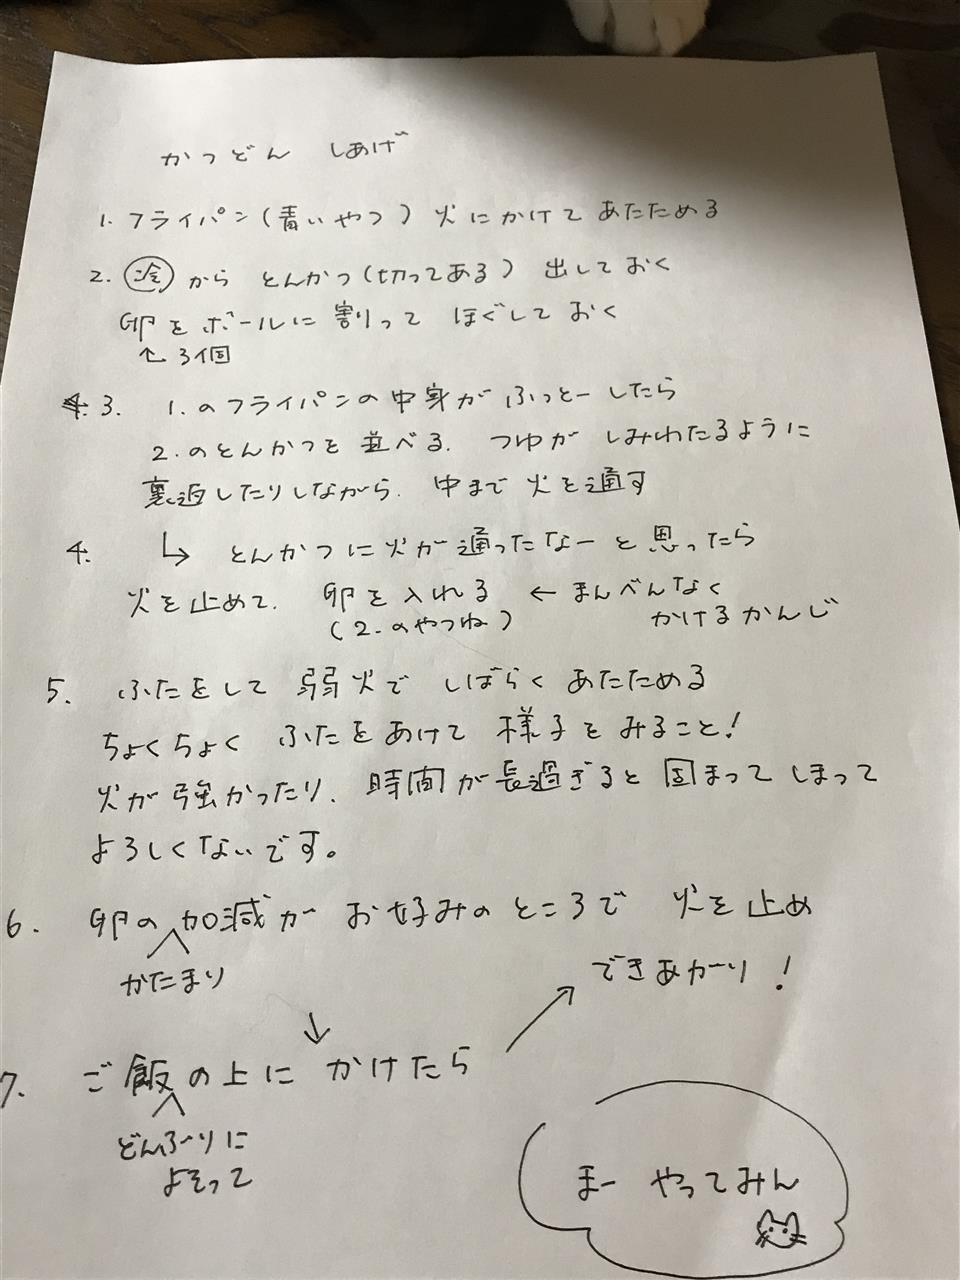 かつどん しあげ
1. フライパン(青いやつ) 火にかけて あたためる
2. 冷 から とんかつ(切ってある) 出しておく
卵をボールに割って ほぐしておく
↑3個
3. 1.のフライパンの中身が ふっとーしたら
2.のとんかつを並べる. つゆが しみわたるように
裏返したりしながら. 中まで火を通す
4. ↳ とんかつに火が通ったなーと思ったら
火を止めて. 卵を入れる ← まんべんなく
(2.のやつね) かけるかんじ
5. ふたをして 弱火で しばらく あたためる
ちょくちょく ふたをあけて 様子をみること!
火が強かったり. 時間が長過ぎると 固まってしまって
よろしくないです。
6. 卵の加減が お好みのところで 火を止め
かたまり
できあがーり!
7. ご飯の上に かけたら
どんぶーりに
よそって
まー やってみん